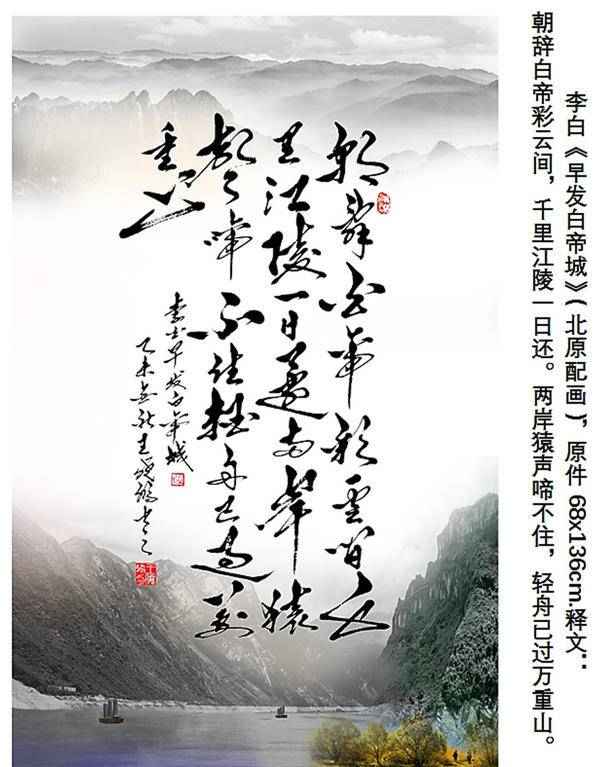 李白《早发白帝城》(北原配画), 原件 68x136cm.释文:
朝辞白帝彩云间, 千里江陵一日还。两岸猿声啼不住, 轻舟已过万重山。
朝辞白帝彩雲間千
里江陵一日還两岸猿
聲啼不住轻舟已过万
重山
李白早发白帝城
乙未